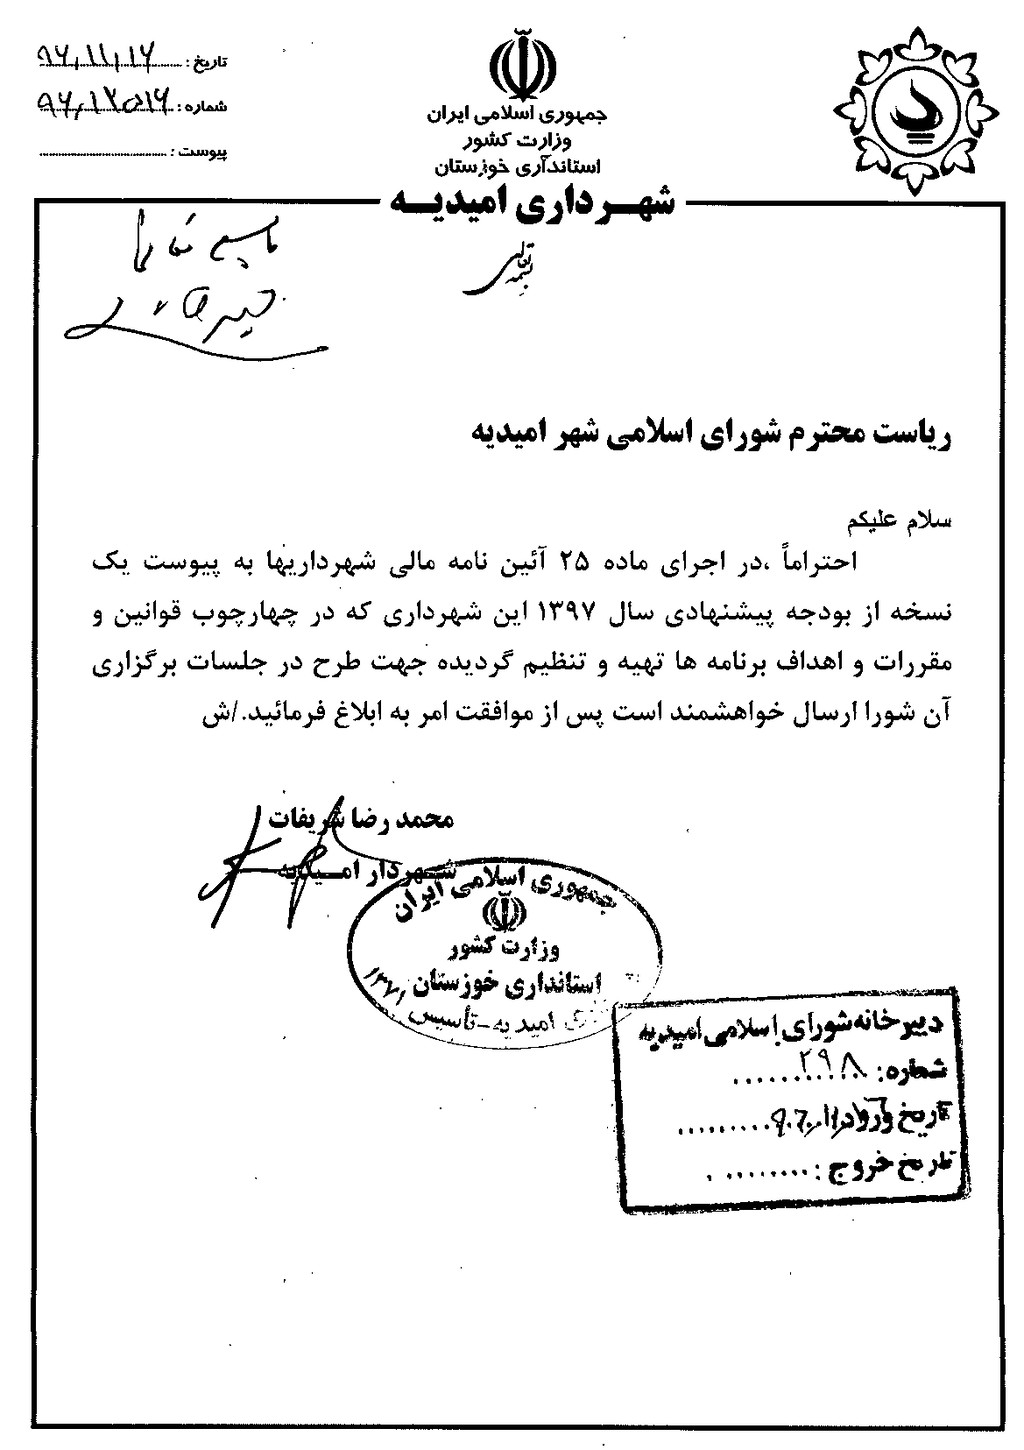 جمهوری اسلامی ایران
وزارت کشور
استانداری خوزستان
شهرداری امیدیه
تاریخ : ۹۶،۱۱،۱۶
شماره : ۹۶،۱۲۵۱۶
پیوست :
بسمه تعالی
ریاست محترم شورای اسلامی شهر امیدیه
سلام علیکم
احتراماً ،در اجرای ماده ۲۵ آئین نامه مالی شهرداریها به پیوست یک
نسخه از بودجه پیشنهادی سال ۱۳۹۷ این شهرداری که در چهارچوب قوانین و
مقررات و اهداف برنامه ها تهیه و تنظیم گردیده جهت طرح در جلسات برگزاری
آن شورا ارسال خواهشمند است پس از موافقت امر به ابلاغ فرمائید./ش
محمد رضا شریفات
شهردار امیدیه
جمهوری اسلامی ایران
وزارت کشور
استانداری خوزستان
امیدیه - تأسیس ۱۳۷۱
دبیرخانه شورای اسلامی امیدیه
شماره: ۲۹۸
تاریخ ورود
تاریخ خروج :